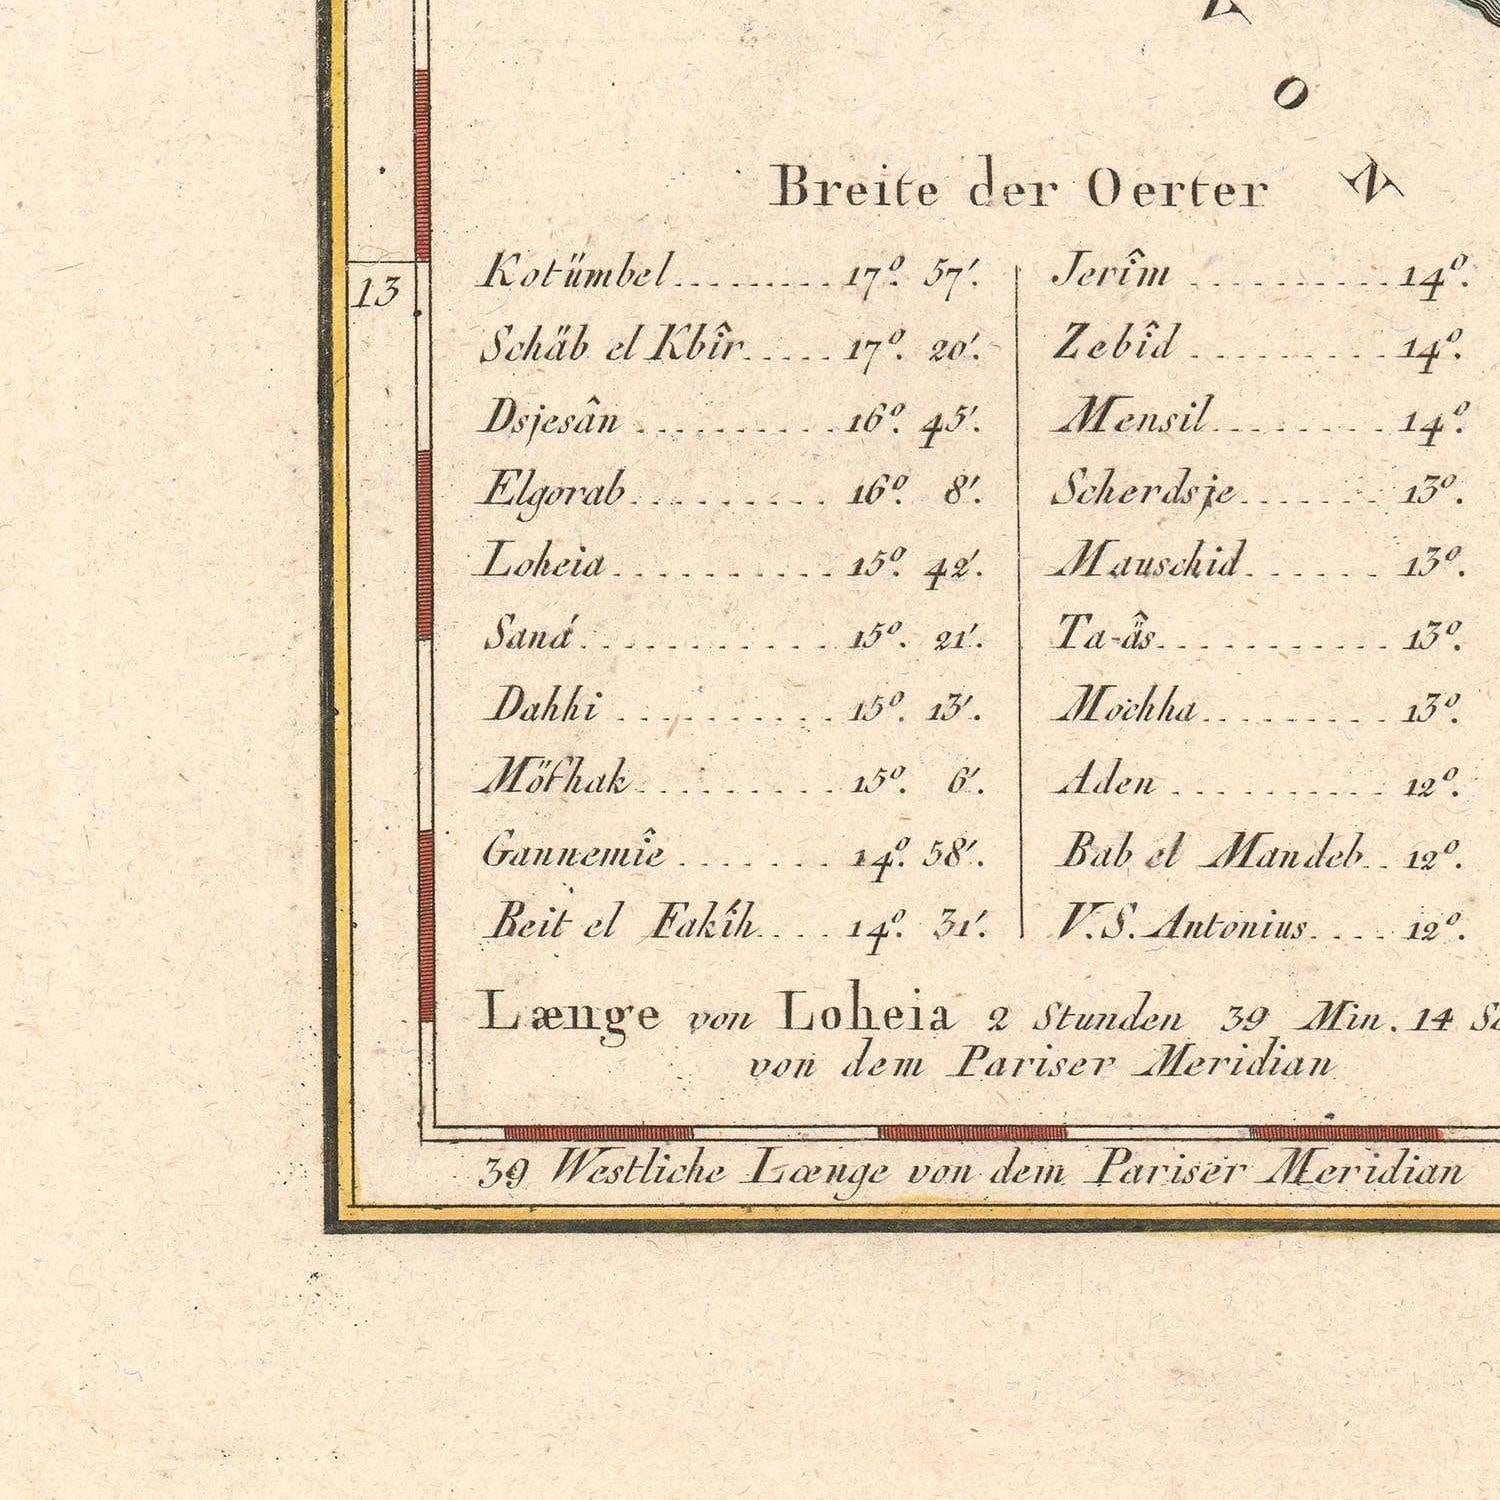 A
O
N
Breite der Oerter
Kotümbel......... 17°. 57'.
Schäb el Kbîr..... 17°. 20'.
Dsjesân .......... 16°. 45'.
Elgorab.......... 16°. 8'.
Loheia........... 15°. 42'.
Saná............ 15°. 21'.
Dahhi ........... 15°. 13'.
Möfhak.......... 15°. 6'.
Gannemîe ....... 14°. 58'.
Beit el Fakíh.... 14°. 31'.
Jerîm ........... 14°.
Zebîd .......... 14°.
Mensil......... 14°.
Scherdsje....... 13°.
Mauschid...... 13°.
Ta-âs........... 13°.
Mochha......... 13°.
Aden .......... 12°.
Bab el Mandeb.. 12°.
V.S. Antonius.... 12°.
13
Længe von Loheia 2 Stunden 39 Min. 14 Se
von dem Pariser Meridian
39 Westliche Længe von dem Pariser Meridian